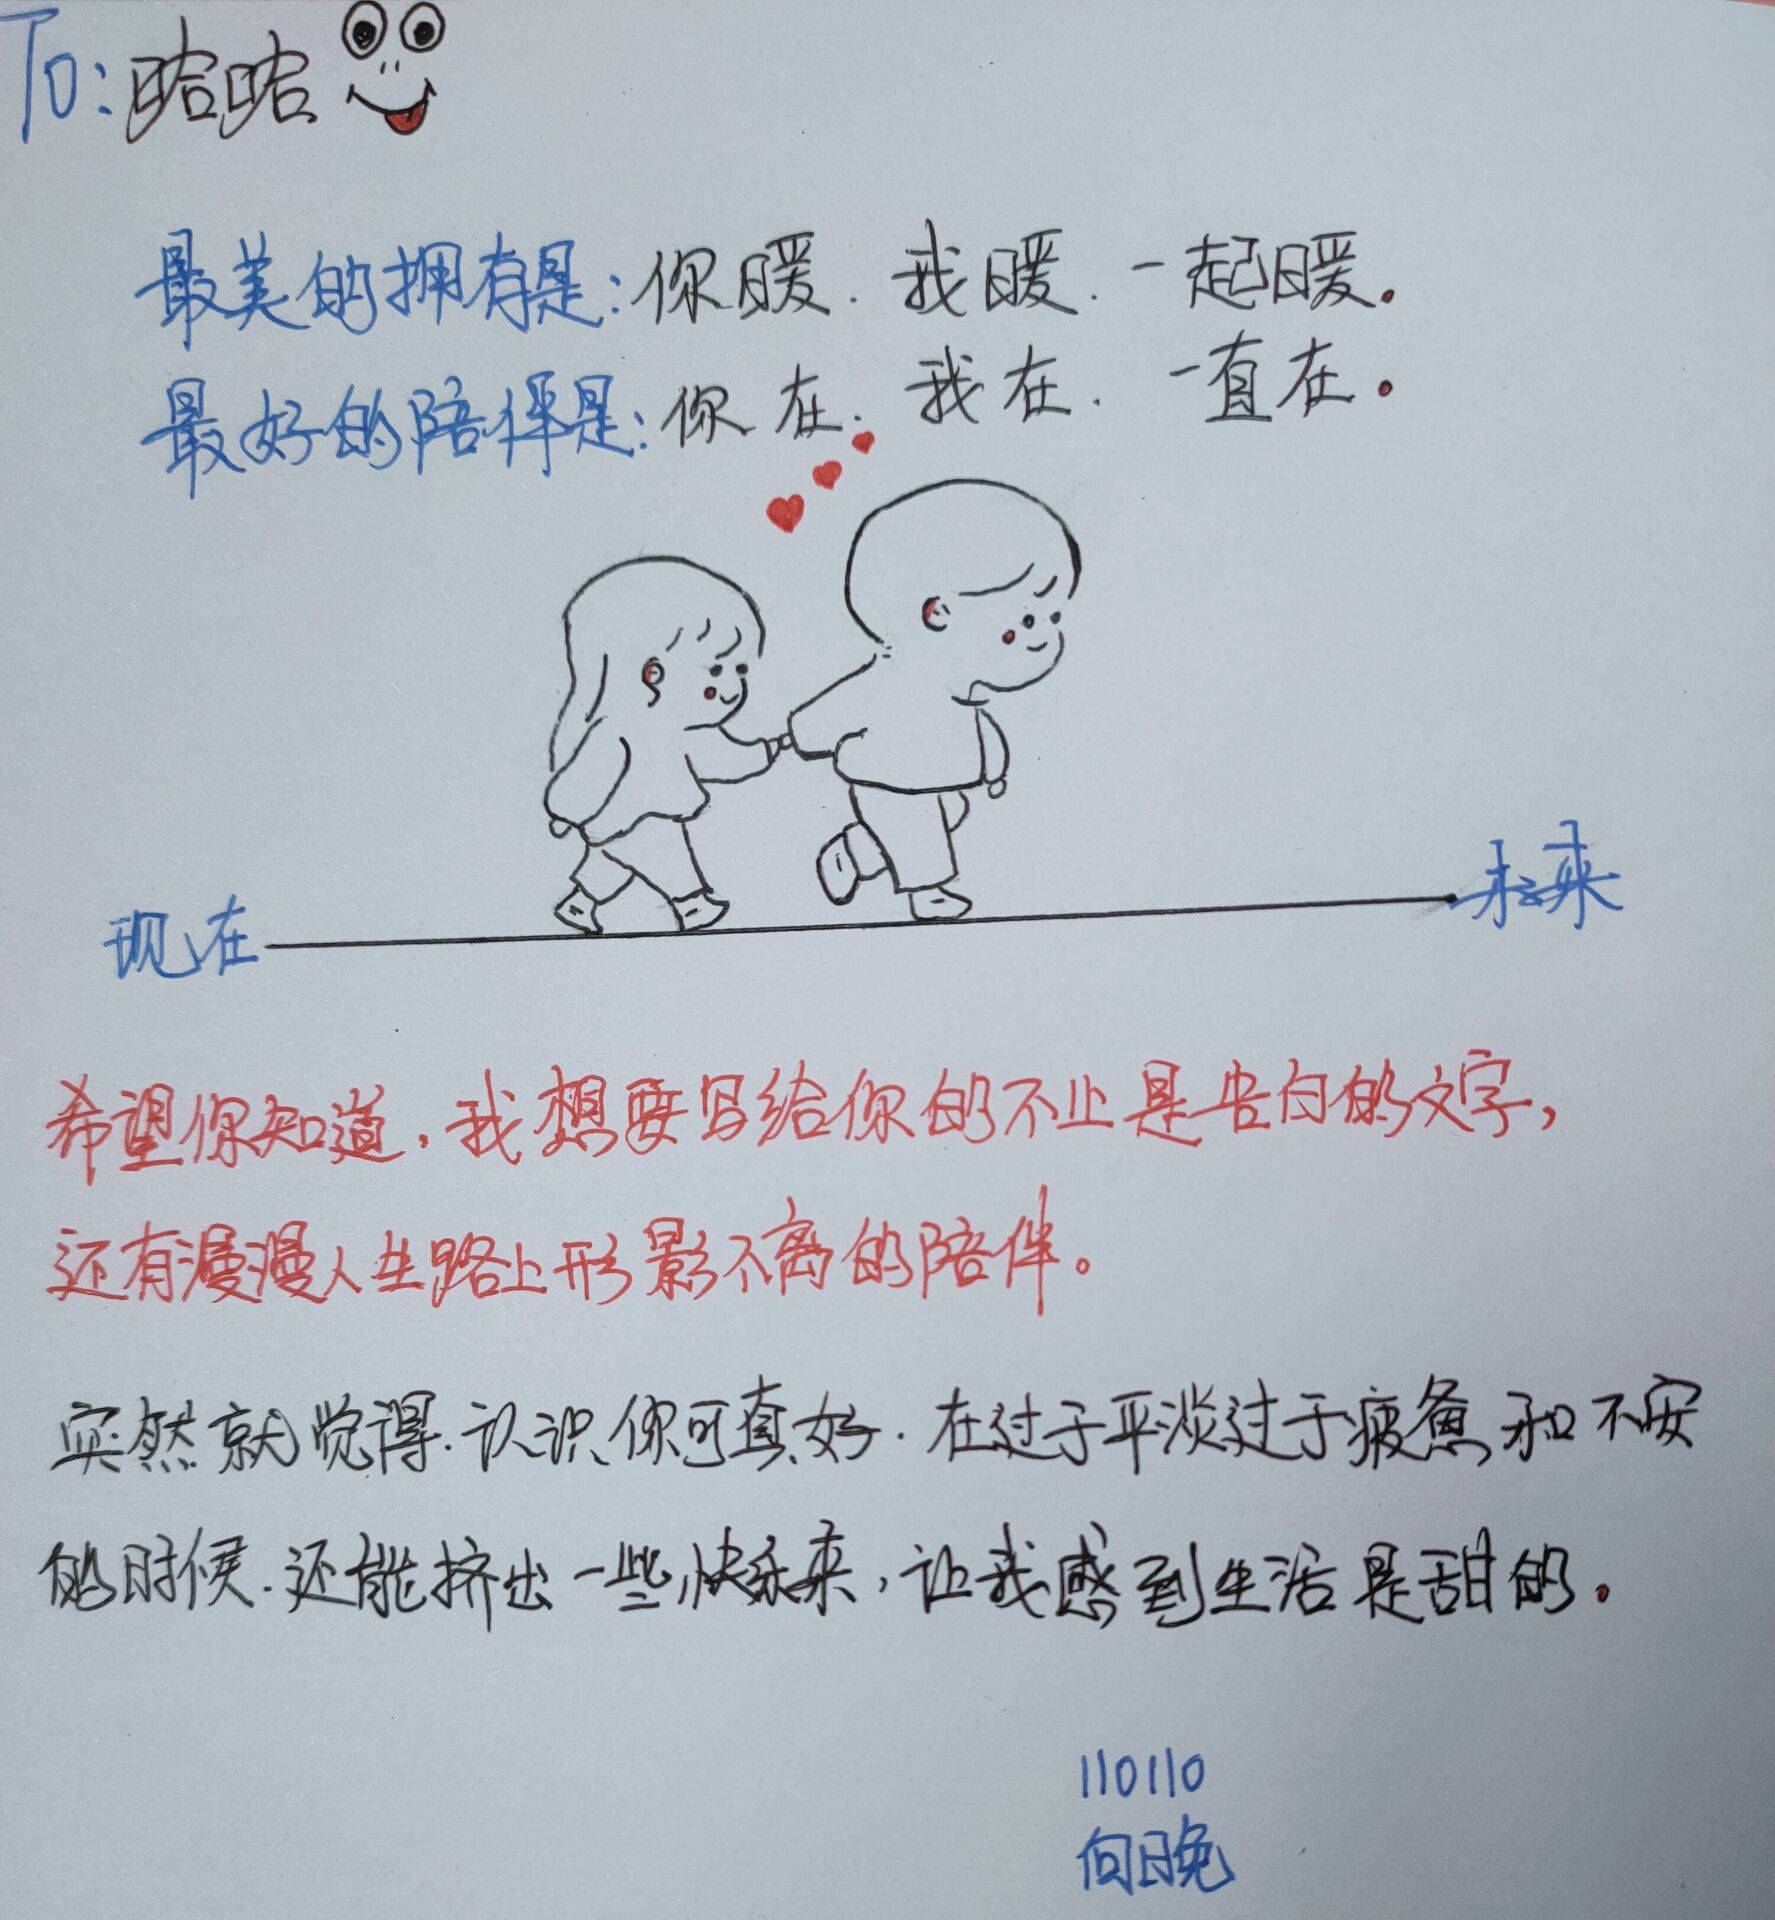 To:哈哈
最美的拥有是:你暖.我暖.一起暖.
最好的陪伴是:你在.我在.一直在.
现在 未来
希望你知道,我想要写给你的不止是告白的文字,
还有漫漫人生路上形影不离的陪伴。
突然就觉得.认识你可真好.在过于平淡过于疲惫和不安
的时候.还能挤出一些快乐来,让我感到生活是甜的.
110110
向晚